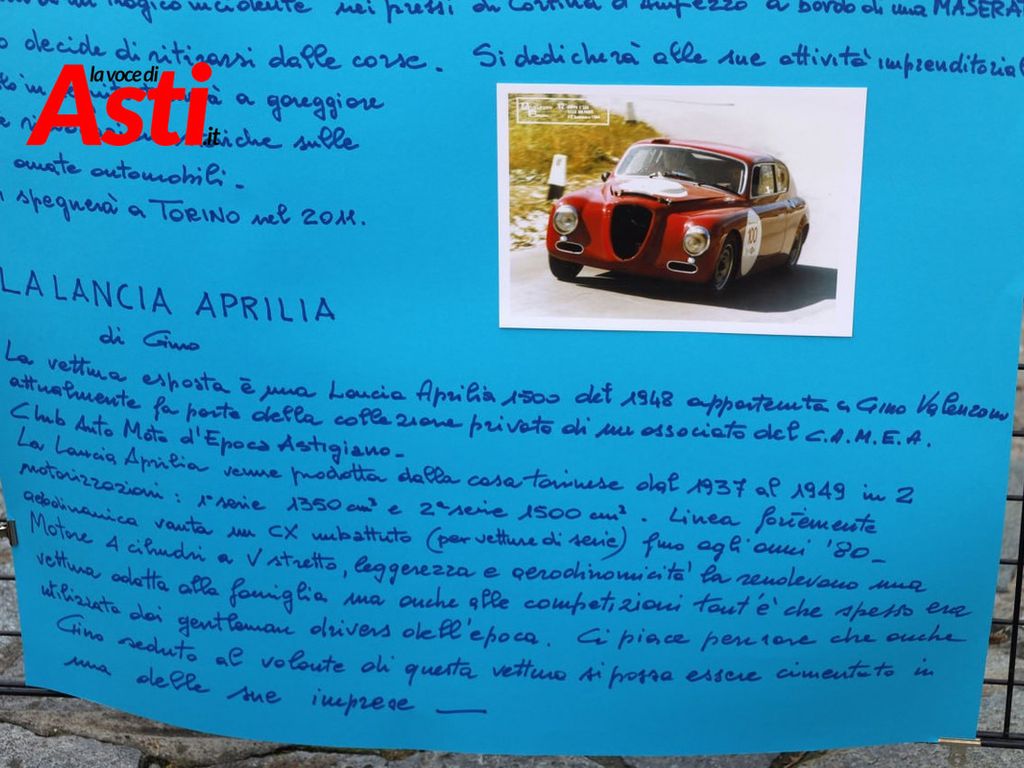 di un tragico incidente nei pressi di Cortina d'Ampezzo a bordo di una MASERA
o decide di ritirarsi dalle corse. Si dedicherà alle sue attività imprenditorial
la voce di
Asti.it
a gareggiare
sulle
amate automobili.
spegnerà a TORINO nel 2011.
100
LA LANCIA APRILIA
di Gino
La vettura esposta è una Lancia Aprilia 1500 del 1948 appartenuta a Gino Valenzano
attualmente fa parte della collezione privata di un associato del C.A.M.E.A.
Club Auto Moto d'Epoca Astigiano.
La Lancia Aprilia venne prodotta dalla casa torinese dal 1937 al 1949 in 2
motorizzazioni: 1ª serie 1350 cm³ e 2ª serie 1500 cm³. Linea fortemente
aerodinamica vanta un CX imbattuto (per vetture di serie) fino agli anni '80_
Motore 4 cilindri a V stretto, leggerezza e aerodinamicità la rendevano una
vettura adatta alla famiglia ma anche alle competizioni tant'è che spesso era
utilizzata dai gentleman drivers dell'epoca. Ci piace pensare che anche
Gino seduto al volante di questa vettura si possa essere cimentato in
una delle sue imprese